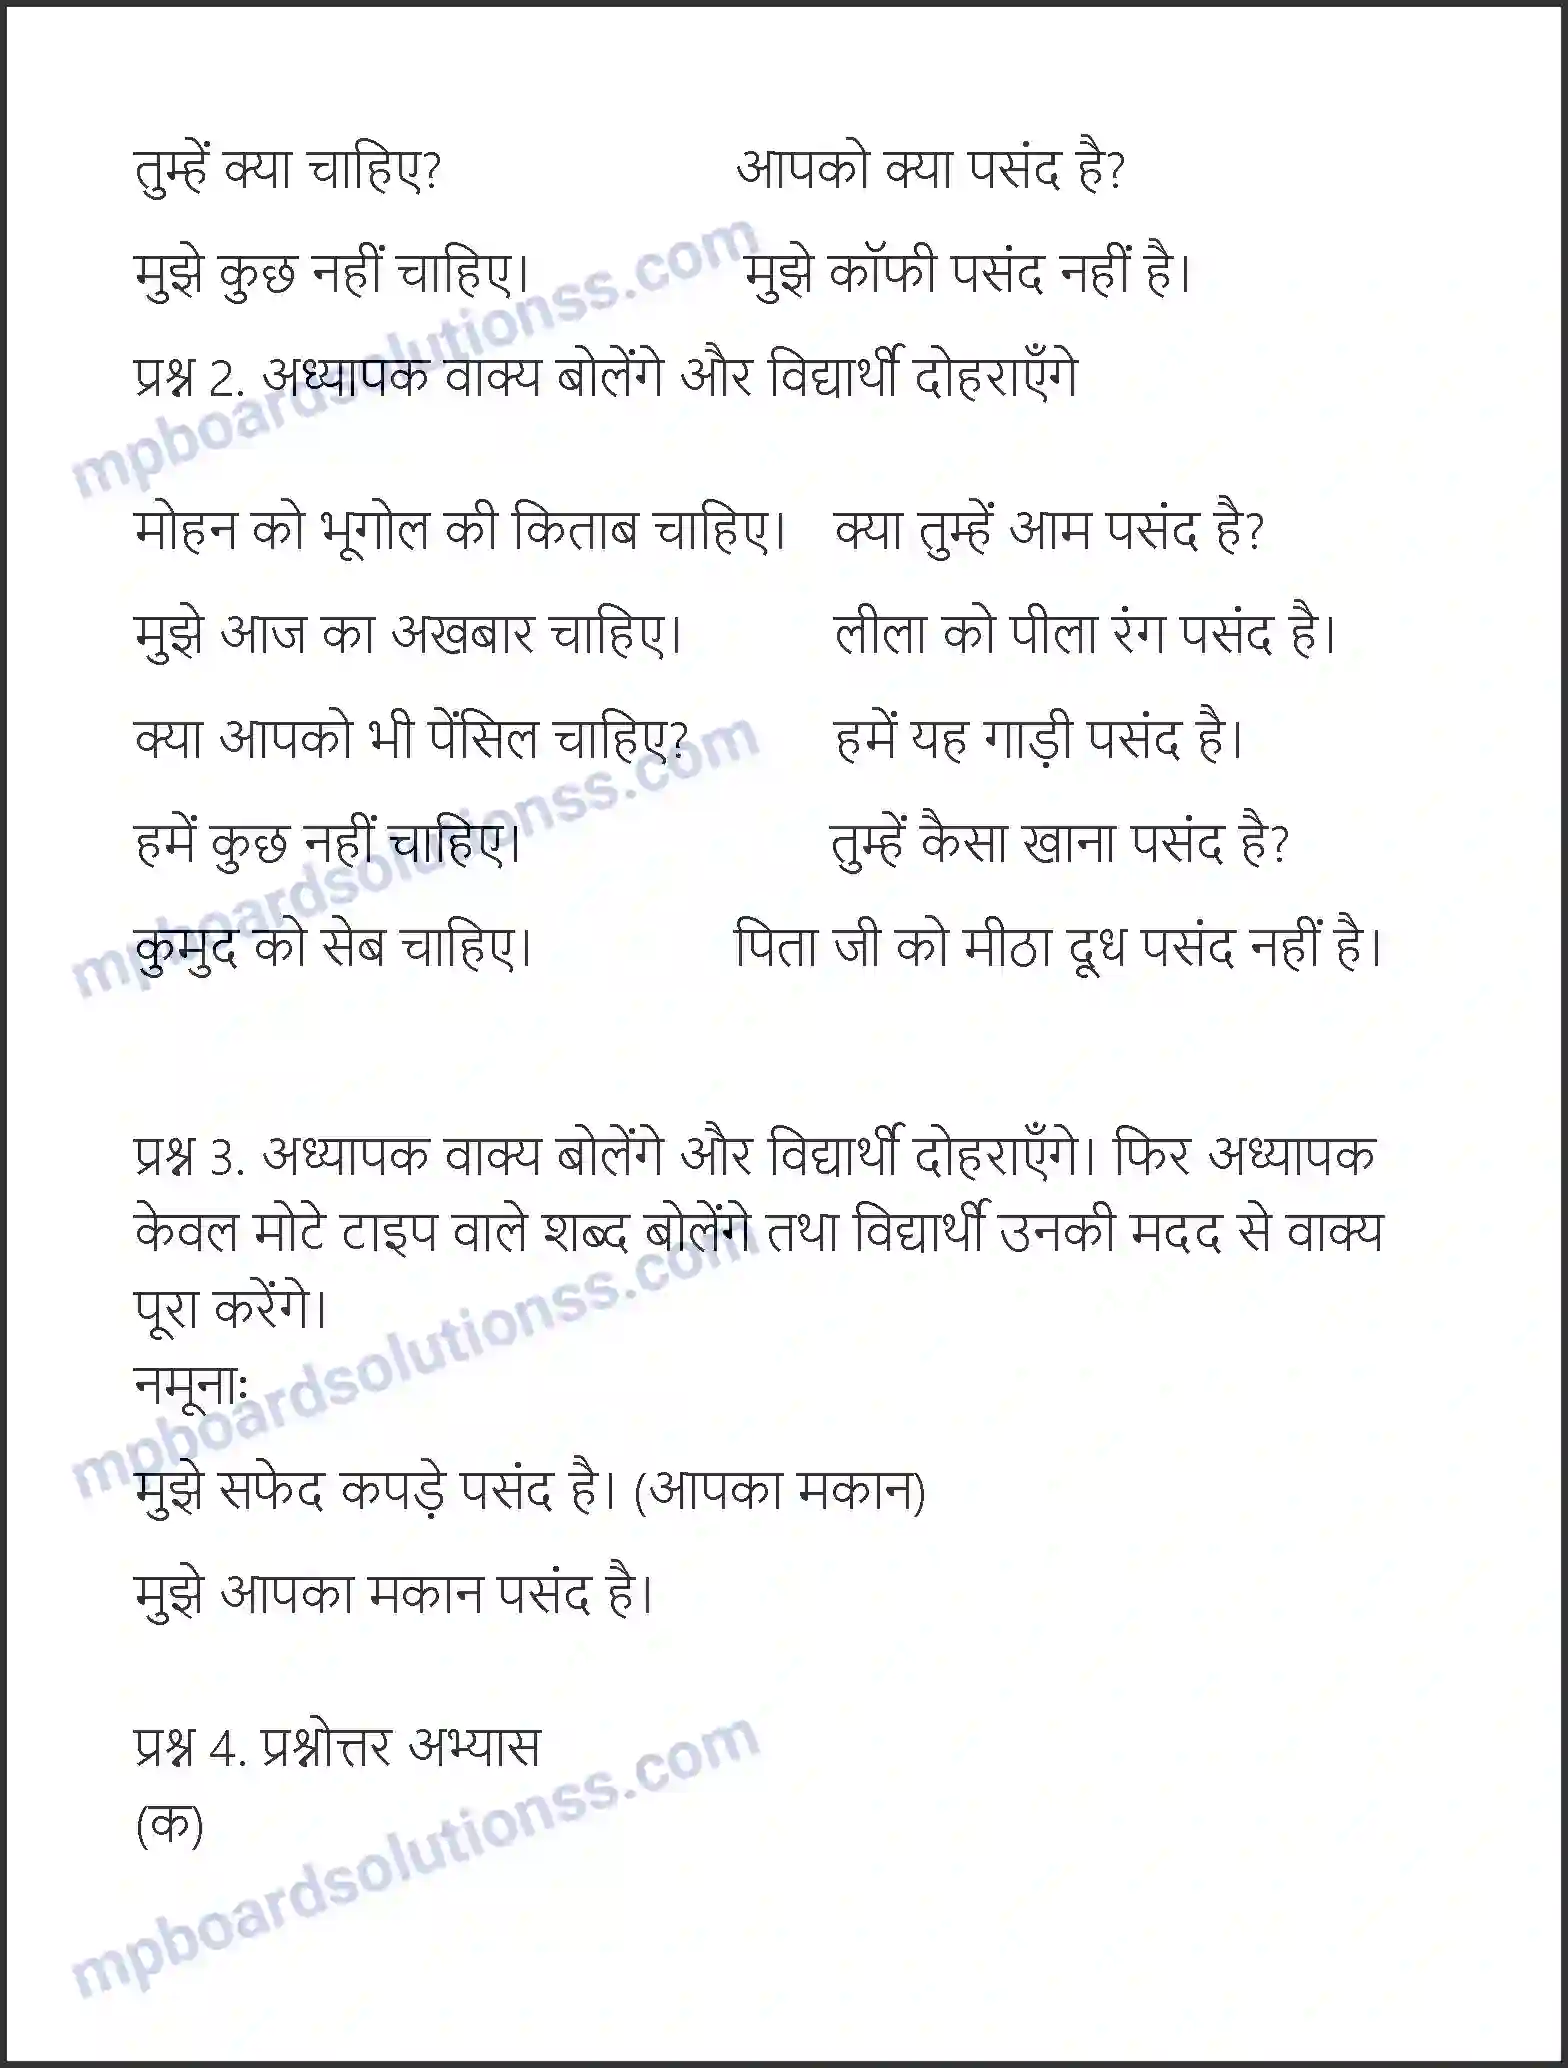 तुम्हें क्या चाहिए? आपको क्या पसंद है?
मुझे कुछ नहीं चाहिए। मुझे कॉफी पसंद नहीं है।
प्रश्न 2. अध्यापक वाक्य बोलेंगे और विद्यार्थी दोहराएँगे
mpboardsolutionss.com
मोहन को भूगोल की किताब चाहिए। क्या तुम्हें आम पसंद है?
मुझे आज का अखबार चाहिए। लीला को पीला रंग पसंद है।
क्या आपको भी पेंसिल चाहिए? हमें यह गाड़ी पसंद है।
हमें कुछ नहीं चाहिए। तुम्हें कैसा खाना पसंद है?
mpboardsolutionss.com
कुमुद को सेब चाहिए। पिता जी को मीठा दूध पसंद नहीं है।
प्रश्न 3. अध्यापक वाक्य बोलेंगे और विद्यार्थी दोहराएँगे। फिर अध्यापक
केवल मोटे टाइप वाले शब्द बोलेंगे तथा विद्यार्थी उनकी मदद से वाक्य
पूरा करेंगे।
नमूनाः
mpboardsolutionss.com
मुझे सफेद कपड़े पसंद है। (आपका मकान)
मुझे आपका मकान पसंद है।
प्रश्न 4. प्रश्नोत्तर अभ्यास
(क)
mpboardsolutionss.com